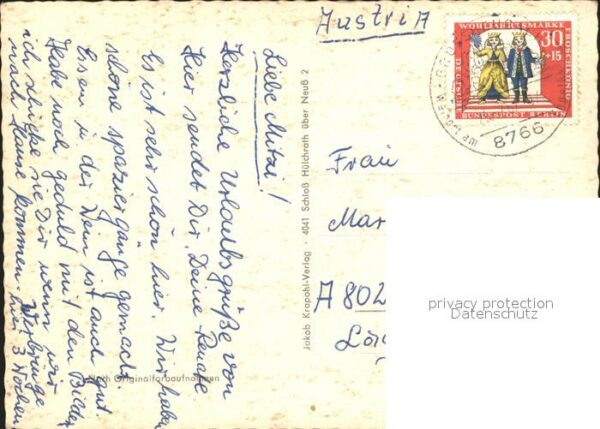 Austria
Liebe Mitzi!
Herzliche Urlaubsgrüße von
hier sendet Dir Deine Renate
Es ist sehr schön hier. Wir haben
schöne spaziergänge gemacht.
Essen in der Heim ist auch gut.
Habe noch geduld mit den Bilder
ich schicke sie Dir wenn wir
nach Hause kommen.
hier 3 Wochen
Nach Originalfarbaufnahmen
Jakob Krapohl-Verlag · 4041 Schloß Hülchrath über Neuß 2
WOHLFAHRTSMARKE
FROSCHKÖNIG
30
+15
DEUTSCHE
BUNDESPOST BERLIN
8766
Frau
Mar
A 802
privacy protection
Datenschutz